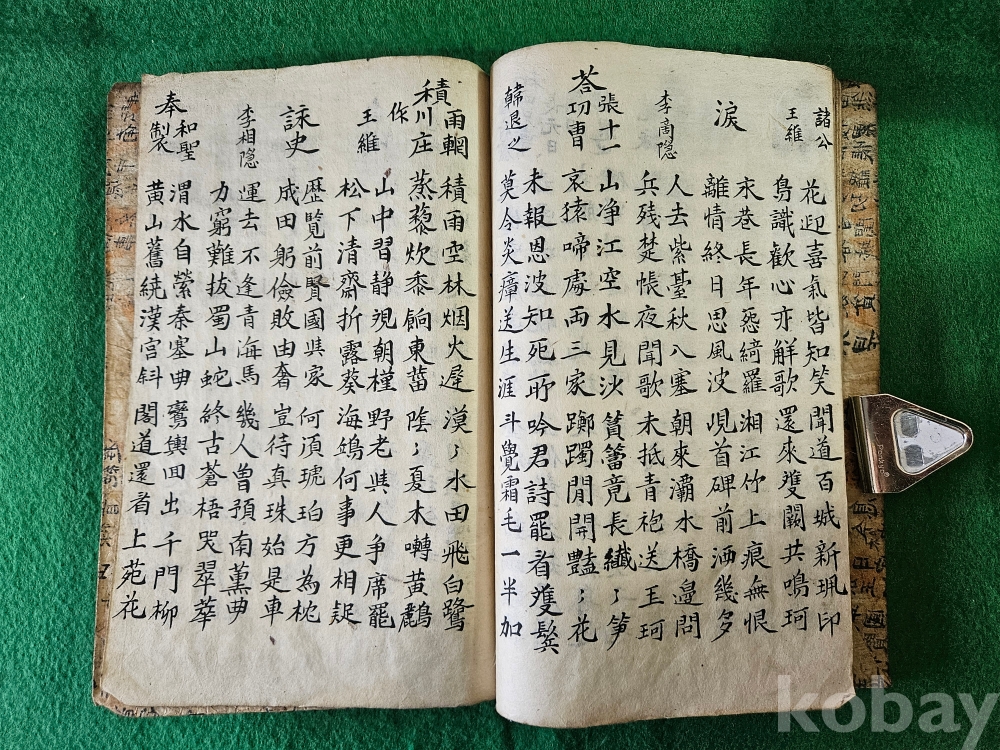 諸公
王維
花迎喜氣皆知笑 聞道百城新珮印
鳥識歡心亦觧歌 還來雙闕共鳴珂
淚
李商隐
永巷長年怨綺羅 湘江竹上痕無恨
離情終日思風波 峴首碑前洒幾多
人去紫臺秋入塞 朝來灞水橋邉問
兵残楚帳夜聞歌 未抵青袍送玉珂
荅張十一功曹
韓退之
山净江空水見沙 篔簹竟長纎〻笋
哀猿啼處両三家 躑躅閒開豔〻花
未報恩波知死所 吟君詩罷看雙鬂
莫令炎瘴送生涯 斗覺霜毛一半加
積雨輞川庄作
王維
積雨空林烟火遅 漠〻水田飛白鷺
蒸藜炊黍餉東菑 陰〻夏木囀黄鸝
山中習静視朝槿 野老與人争席罷
松下清齋折露葵 海鴒何事更相疑
詠史
李相隐
歴覧前賢國與家 何湏琥珀方為枕
成田躬儉敗由奢 豈待真珠始是車
運去不逢青海馬 幾人曾預南薫曲
力窮難拔蜀山蛇 終古蒼梧哭翠華
奉和聖製
渭水自縈秦塞曲 鸞輿囬出千門柳
黄山舊繞漢宫斜 閣道還看上苑花
kobay